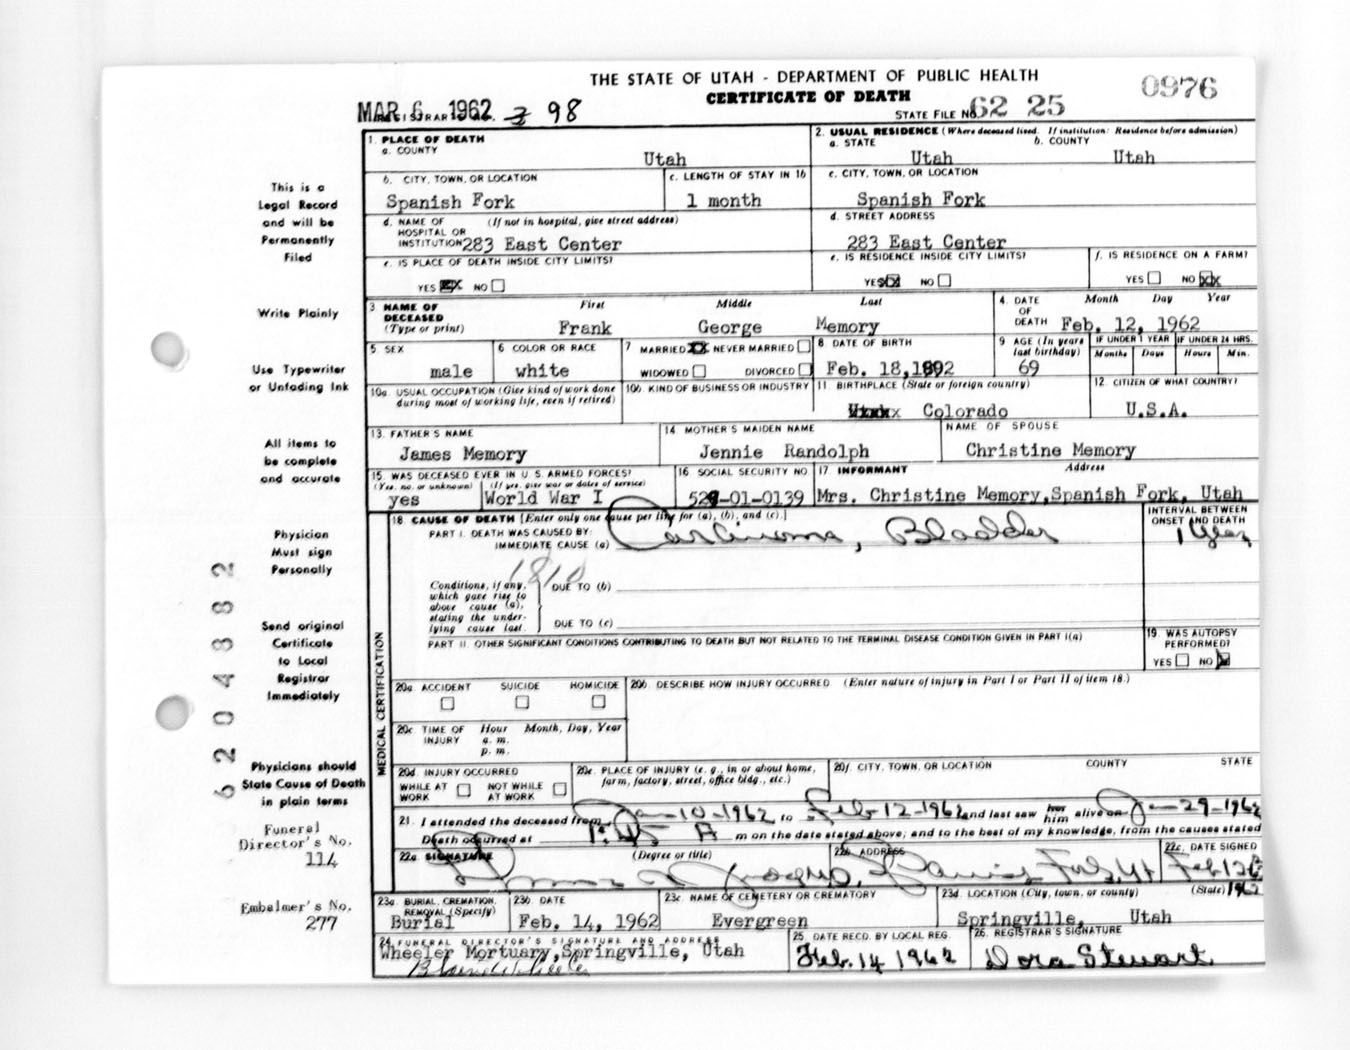 THE STATE OF UTAH - DEPARTMENT OF PUBLIC HEALTH
CERTIFICATE OF DEATH
0976
MAR 6 1962 3 98
STATE FILE No. 62 25
1. PLACE OF DEATH
a. COUNTY
Utah
2. USUAL RESIDENCE (Where deceased lived. If institution: Residence before admission)
a. STATE b. COUNTY
Utah Utah
b. CITY, TOWN, OR LOCATION
Spanish Fork
c. LENGTH OF STAY IN 1b
1 month
c. CITY, TOWN, OR LOCATION
Spanish Fork
d. NAME OF HOSPITAL OR INSTITUTION (If not in hospital, give street address)
283 East Center
d. STREET ADDRESS
283 East Center
e. IS PLACE OF DEATH INSIDE CITY LIMITS?
YES NO
e. IS RESIDENCE INSIDE CITY LIMITS?
YES NO
f. IS RESIDENCE ON A FARM?
YES NO
3 NAME OF DECEASED (Type or print)
First Middle Last
Frank George Memory
4. DATE OF DEATH Month Day Year
Feb. 12, 1962
5. SEX
male
6 COLOR OR RACE
white
7 MARRIED NEVER MARRIED
WIDOWED DIVORCED
8 DATE OF BIRTH
Feb. 18, 1892
9 AGE (In years last birthday)
69
IF UNDER 1 YEAR
Months Days
IF UNDER 24 HRS.
Hours Min.
10a. USUAL OCCUPATION (Give kind of work done during most of working life, even if retired)
10b. KIND OF BUSINESS OR INDUSTRY
11. BIRTHPLACE (State or foreign country)
Colorado
12. CITIZEN OF WHAT COUNTRY?
U.S.A.
13. FATHER'S NAME
James Memory
14 MOTHER'S MAIDEN NAME
Jennie Randolph
NAME OF SPOUSE
Christine Memory
15 WAS DECEASED EVER IN U. S. ARMED FORCES?
(Yes, no, or unknown) (If yes, give war or dates of service)
yes World War I
16 SOCIAL SECURITY NO.
529-01-0139
17 INFORMANT Address
Mrs. Christine Memory, Spanish Fork, Utah
MEDICAL CERTIFICATION
18 CAUSE OF DEATH [Enter only one cause per line for (a), (b), and (c).]
PART I. DEATH WAS CAUSED BY:
IMMEDIATE CAUSE (a) Carcinoma, Bladder
INTERVAL BETWEEN ONSET AND DEATH
1 Year
1810
Conditions, if any, which gave rise to above cause (a), stating the underlying cause last.
DUE TO (b)
DUE TO (c)
PART II. OTHER SIGNIFICANT CONDITIONS CONTRIBUTING TO DEATH BUT NOT RELATED TO THE TERMINAL DISEASE CONDITION GIVEN IN PART I(a)
19. WAS AUTOPSY PERFORMED?
YES NO
20a. ACCIDENT SUICIDE HOMICIDE
20b. DESCRIBE HOW INJURY OCCURRED (Enter nature of injury in Part I or Part II of item 18.)
20c TIME OF INJURY Hour Month, Day, Year
a. m.
p. m.
20d. INJURY OCCURRED
WHILE AT WORK NOT WHILE AT WORK
20e. PLACE OF INJURY (e. g., in or about home, farm, factory, street, office bldg., etc.)
20f. CITY, TOWN, OR LOCATION COUNTY STATE
21. I attended the deceased from Jan-10-1962 to Feb-12-1962 and last saw her him alive on Jan-29-1962
Death occurred at 1:45 A m on the date stated above; and to the best of my knowledge, from the causes stated
22a. SIGNATURE (Degree or title)
22b. ADDRESS
Spanish Fork, Ut
22c. DATE SIGNED
Feb 12
1962
23a. BURIAL, CREMATION, REMOVAL (Specify)
Burial
23b. DATE
Feb. 14, 1962
23c. NAME OF CEMETERY OR CREMATORY
Evergreen
23d. LOCATION (City, town, or county) (State)
Springville, Utah
24. FUNERAL DIRECTOR'S SIGNATURE AND ADDRESS
Wheeler Mortuary, Springville, Utah
25. DATE RECD. BY LOCAL REG.
Feb. 14 1962
26. REGISTRAR'S SIGNATURE
Dora Stewart
This is a
Legal Record
and will be
Permanently
Filed
Write Plainly
Use Typewriter
or Unfading Ink
All items to
be complete
and accurate
Physician
Must sign
Personally
Send original
Certificate
to Local
Registrar
Immediately
Physicians should
State Cause of Death
in plain terms
Funeral
Director's No.
114
Embalmer's No.
277